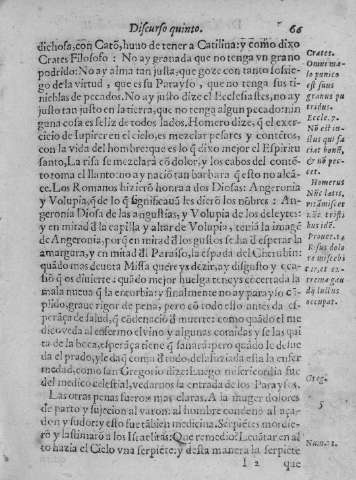 Discurso quinto. 66
dichosa, con Catō, huuo de tener a Catilina: y como dixo
Crates Filosofo: No ay granada que no tenga vn grano
podrido: No ay alma tan justa, que goze con tanto sossie-
go de la virtud, que es su Parayso, que no tenga sus ti-
nieblas de pecados. No ay justo dize el Ecclesiastes, no ay
justo tan justo en la tierra, que no tenga algun pecado: nin
guna cosa es feliz de todos lados. Homero dize, q̄ el exer-
cicio de Iupiter en el cielo, es mezclar pesares y contētos,
con la vida del hombre: que es lo q̄ dixo mejor el Espiritu
santo, La risa se mezclará cō dolor, y los cabos del contē-
to toma el llanto: no ay naciō tan barbara q̄ esto no alcā-
ce. Los Romanos hizierō honra a dos Diosas: Angeronia
y Volupia, q̄ de lo q̄ significauā les dierō los nōbres: An-
geronia Diosa de las angustias, y Volupia de los deleytes:
y en mitad d̄ la capilla y altar de Volupia, tenia la imagē
de Angeronia, porq̄ en mitad d̄ los gustos se ha d̄ esperar la
amargura, y en mitad d̄l Paraiso, la espada del Cherubin:
quādo mas deuota Missa quereys dezir, ay disgusto y oca-
siō q̄ os diuierte: quādo mejor huelga teneys cōcertada la
mala nueua q̄ la estorba: y finalmente no ay parayso cū-
plido, graue rigor de pena, pero cō todo esso antes da es-
perāça de salud, q̄ cōdenaciō d̄ muerte: como quādo el me
dico veda al enfermo el vino y algunas comidas y se las qui
ta de la boca, esperāça tiene q̄ sanará: pero quādo le dessue
da el prado, y le dā q̄ coma d̄ todo, desafuziada està la enfer
medad, como san Gregorio dize: Luego misericordia fue
del medico celestial, vedarnos la entrada de los Paraysos.
Las otras penas fueron mas claras. A la muger dolores
de parto y sujecion al varon: al hombre condeno al açа-
don y sudor: y esto fue tābien medicina. Serpiētes mordie-
rō y lastimarō a los Israelitas: Que remedio? Leuātar en al
to hazia el Cielo vna serpiēte: y desta manera la serpiēte
I 2 que
Crates.
Omni ma-
lo punico
est suus
granus pu
tridus.
Eccle. 7.
Nō est in-
stus qui fa
ciat bonū,
& nō pec-
cet.
Homerus
Prouer. 14
Risus dolo
re miscebi
tur, et ex-
trema gau
dij luctus
occupat.
Greg.
5
Num. 21.